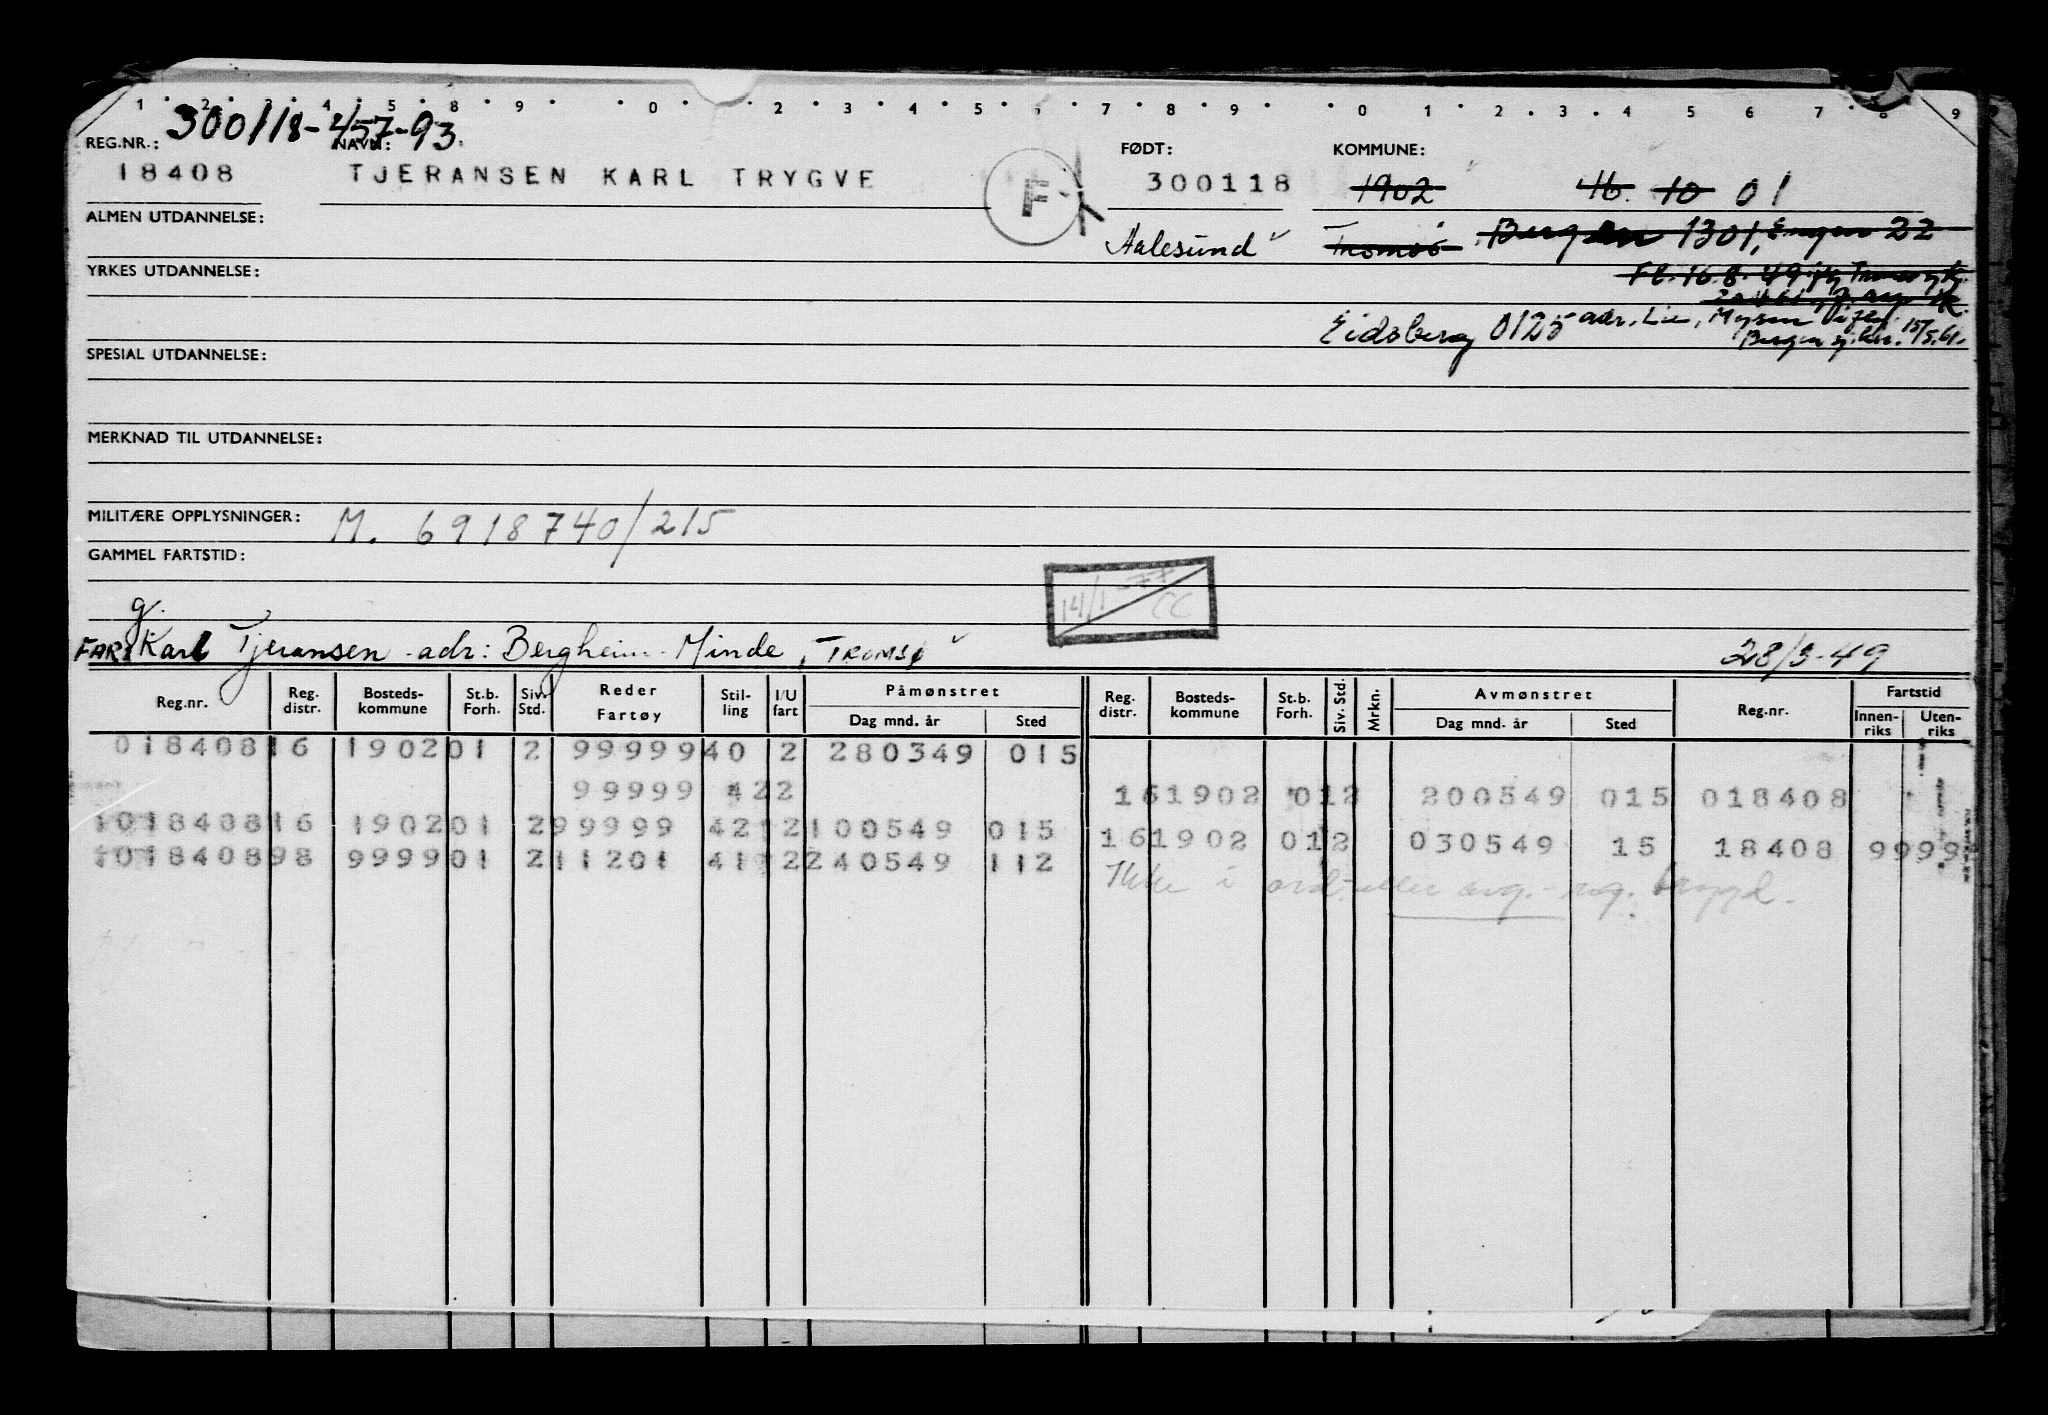 1 2 3 4 5 8 9 0 2 3 4 5 6 7 8 9 0 1 2 3 4 5 6 7 8 9
300118-457-93.
REG.NR.: NAVN: FØDT: KOMMUNE:
18408 TJERANSEN KARL TRYGVE F 300118 1902 46. 10 01
ALMEN UTDANNELSE:
Aalesund Tromsø Bergen 1301, Engen 22
YRKES UTDANNELSE:
Fl. 16.8.49
Eidsberg 0125 adr. Lie, Mysen
Bergen sj. 15/5.61.
SPESIAL UTDANNELSE:
MERKNAD TIL UTDANNELSE:
MILITÆRE OPPLYSNINGER: M. 6918740/215
GAMMEL FARTSTID:
14/1-77 CC
g.
FAR: Karl Tjeransen adr: Bergheim-Minde, TROMSØ 28/3-49
Reg.nr. Reg. distr. Bosteds-kommune St.b. Forh. Siv. Std. Reder Fartøy Stil-ling I/U fart Påmønstret Dag mnd. år Sted Reg. distr. Bosteds-kommune St.b. Forh. Siv. Std. Mrkn. Avmønstret Dag mnd. år Sted Reg.nr. Fartstid Innen-riks Uten-riks
018408 16 1902 01 2 99999 40 2 280349 015
99999 42 2 16 1902 01 2 200549 015 018408
1018408 16 1902 01 2 99999 42 2 100549 015 16 1902 01 2 030549 15 18408 9999
1018408 98 9999 01 2 11201 41 2 240549 112
Ikke i ord. eller avg. - reg. trygd.